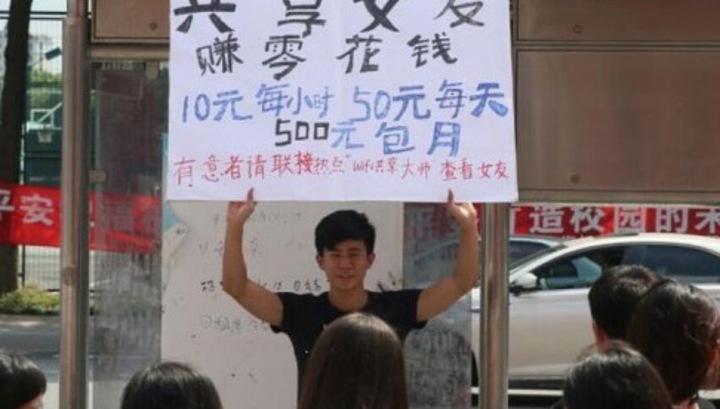 共享女友
赚零花钱
10元每小时 50元每天
500元包月
有意者请联接热点"wifi共享大师"查看女友
平安
造校园的